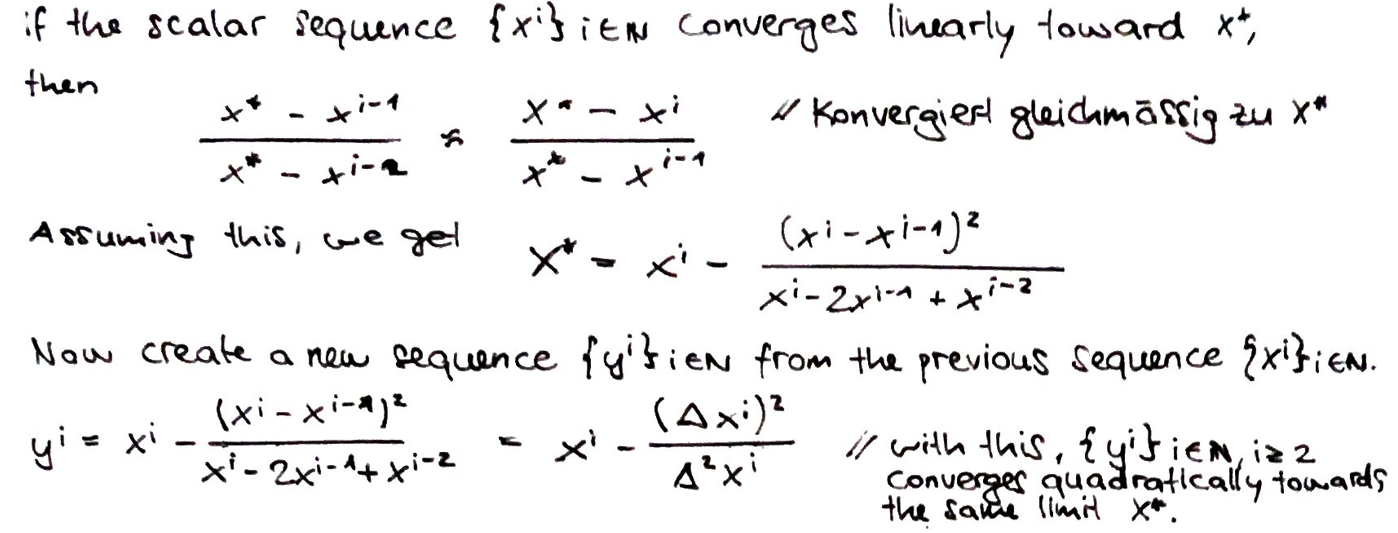 if the scalar sequence {xⁱ} i∈ℕ converges linearly toward x*,
then
(x* - xⁱ⁻¹)/(x* - xⁱ⁻²) ≈ (x* - xⁱ)/(x* - xⁱ⁻¹) // Konvergiert gleichmässig zu x*
Assuming this, we get x* = xⁱ - (xⁱ - xⁱ⁻¹)²/(xⁱ - 2xⁱ⁻¹ + xⁱ⁻²)
Now create a new sequence {yⁱ} i∈ℕ from the previous sequence {xⁱ} i∈ℕ.
yⁱ = xⁱ - (xⁱ - xⁱ⁻¹)²/(xⁱ - 2xⁱ⁻¹ + xⁱ⁻²) = xⁱ - (Δxⁱ)²/(Δ²xⁱ) // with this, {yⁱ} i∈ℕ, i≥2
converges quadratically towards
the same limit x*.